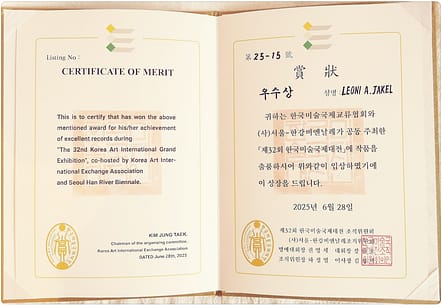 Listing No :
CERTIFICATE OF MERIT
This is to certify that has won the above
mentioned award for his/her achievement
of excellent records during
"The 32nd Korea Art International Grand
Exhibition", co-hosted by Korea Art Inter-
national Exchange Association
and Seoul Han River Biennale.
KIM JUNG TAEK.
Chairman of the organizing committee,
Korea Art International Exchange Association
DATED June 28th, 2025
제 25-15 號
賞 狀
우수상 성명 : LEONI A. JAKEL
귀하는 한국미술국제교류협회와
(사)서울-한강비엔날레가 공동 주최한
「제32회 한국미술국제대전」에 작품을
출품하시어 위와같이 입상하였기에
이 상장을 드립니다.
2025년 6월 28일
제32회 한국미술국제대전 조직위원회
(사)서울-한강비엔날레조직위원회
명예대회장 권영석 대회장
조직위원장 이사장